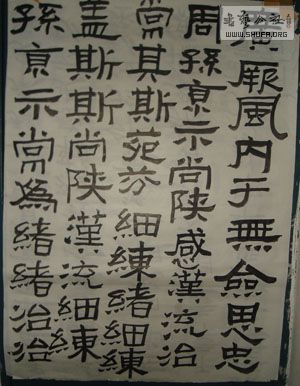 书艺公社
WWW.SHUFA.ORG
厥風内于無僉思忠
周孫京示尚陝感漢流治
其斯苑芬細練緒細練
蓋斯斯尚陝漢流細練
孫京示為緒緒治治